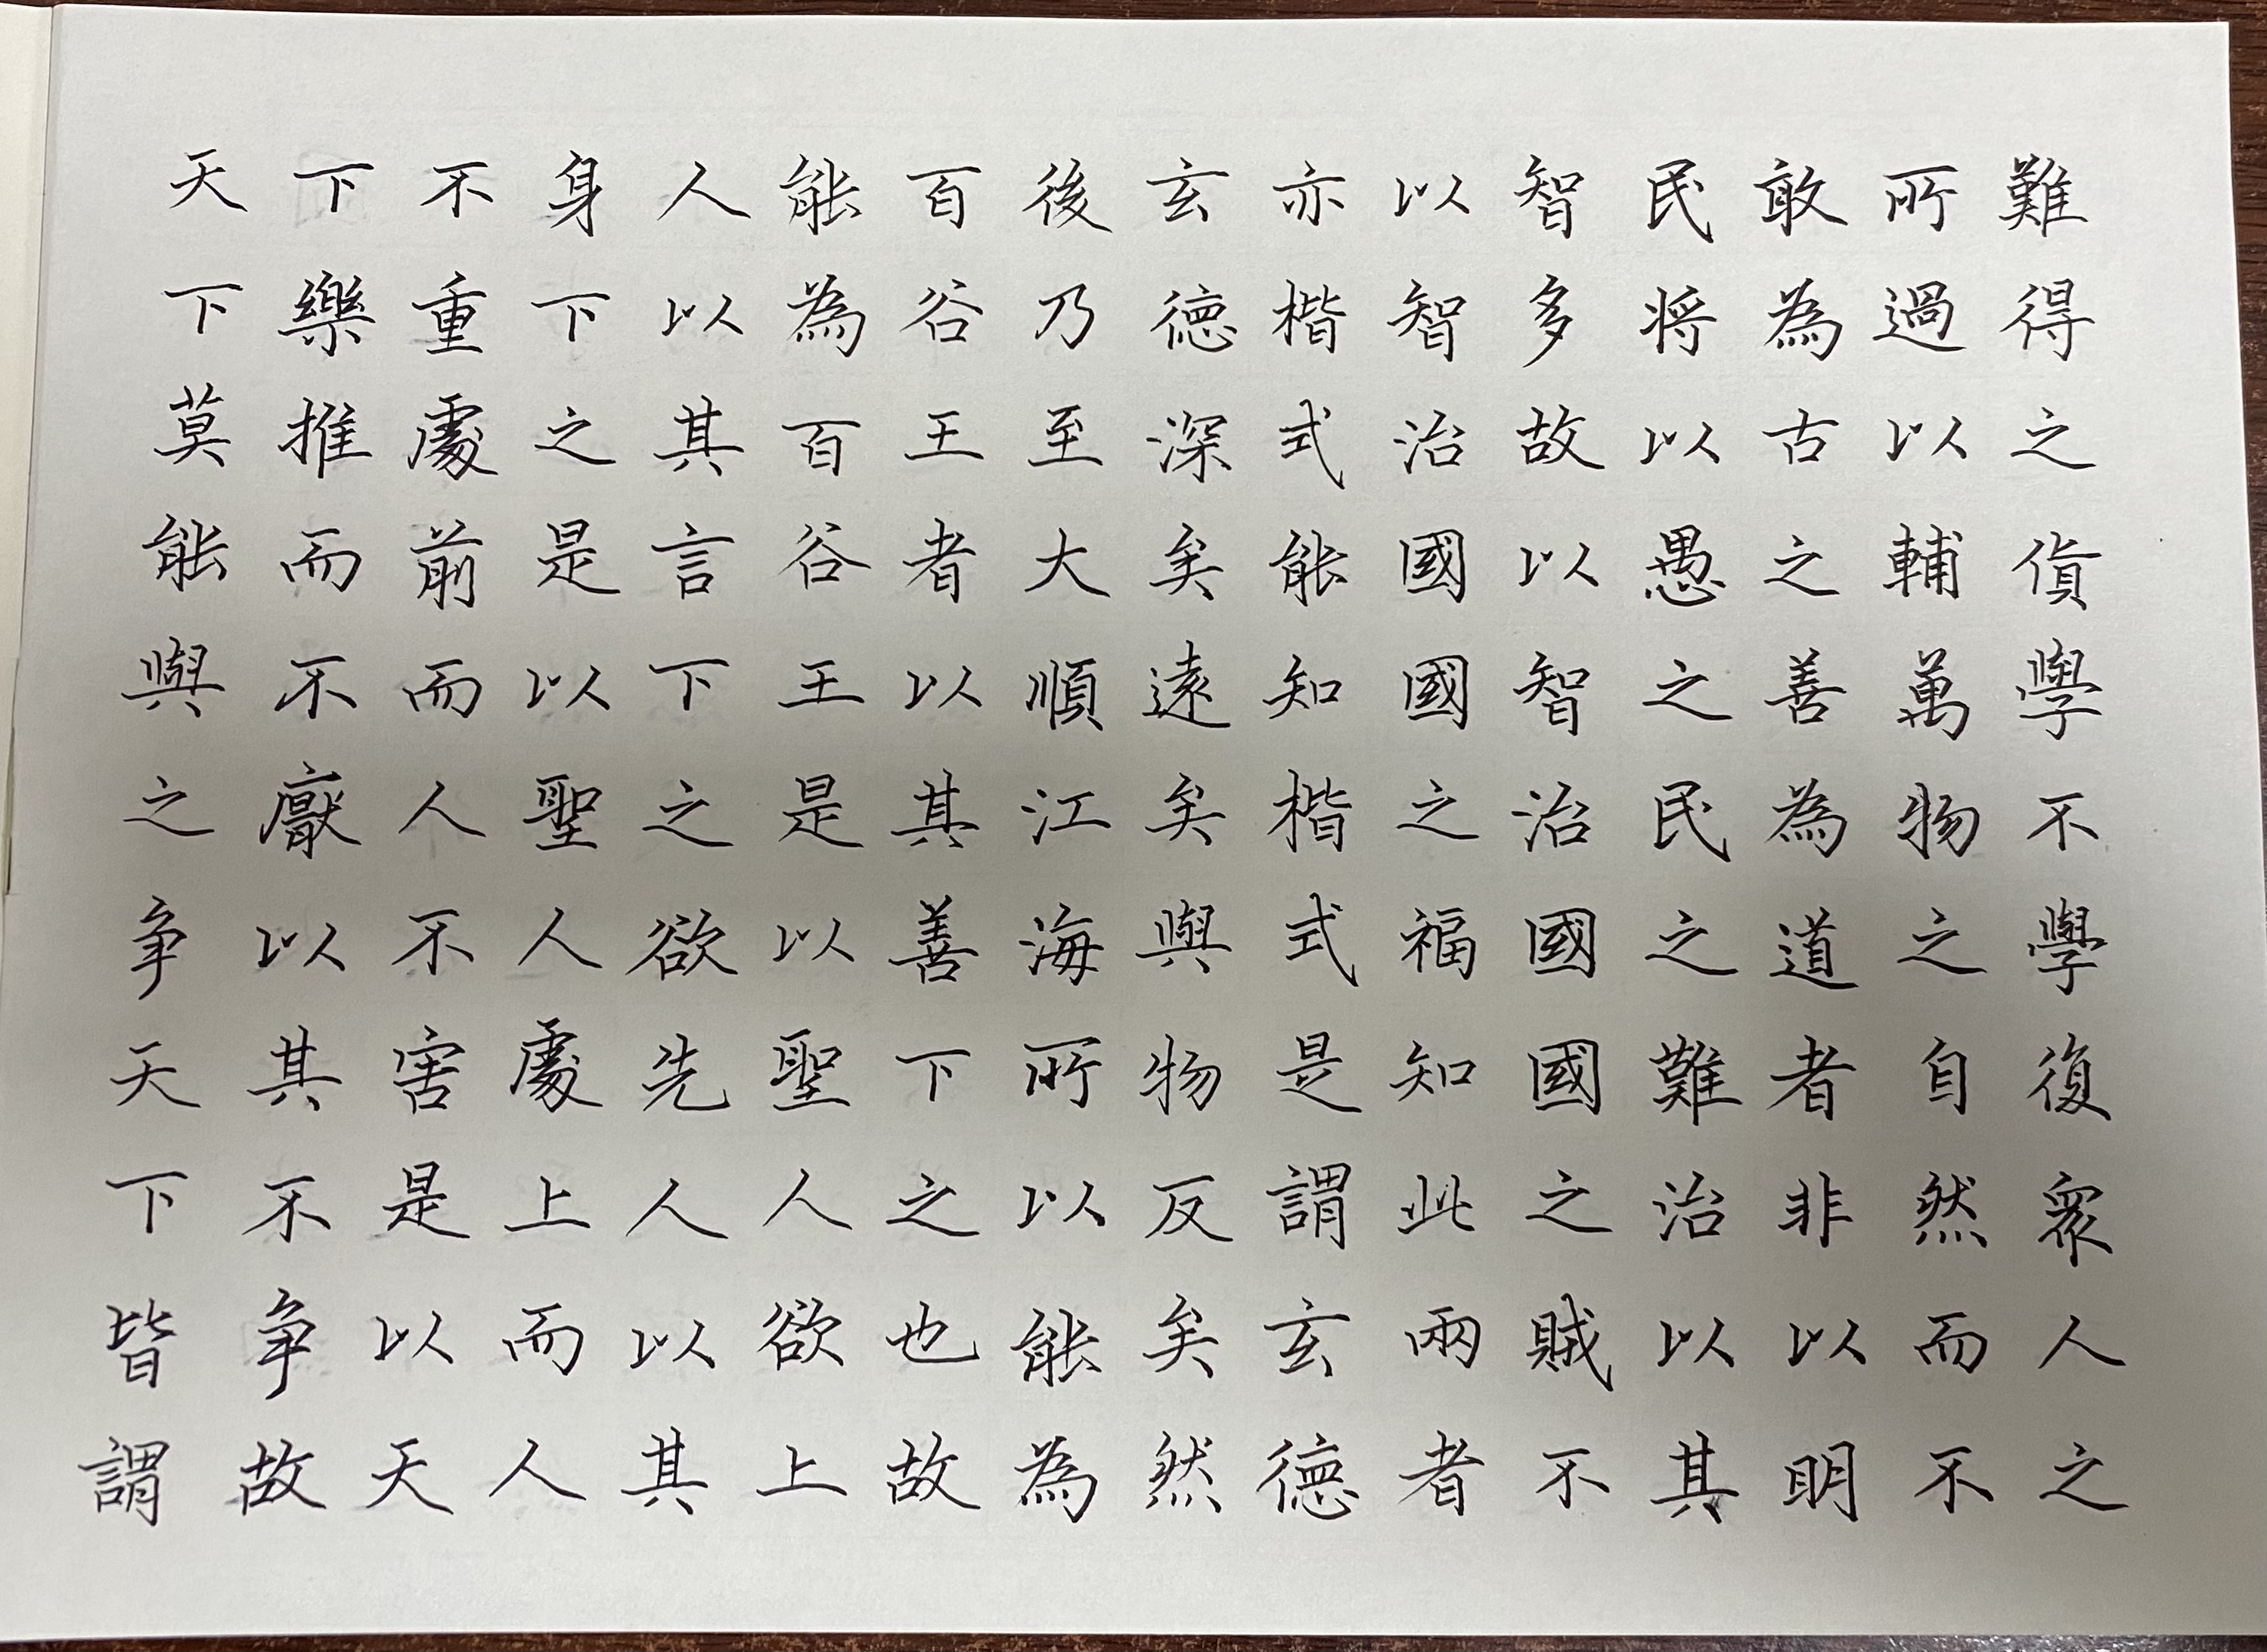 難得之貨學不學復衆人之
所過以輔萬物之自然而不
敢為古之善為道者非以明
民将以愚之民之難治以其
智多故以智治國國之賊不
以智治國國之福知此兩者
亦楷式能知楷式是謂玄德
玄德深矣遠矣與物反矣然
後乃至大順江海所以能為
百谷王者以其善下之也故
能為百谷王是以聖人欲上
人以其言下之欲先人以其
身下之是以聖人處上而人
不重處前而人不害是以天
下樂推而不厭以其不争故
天下莫能與之争天下皆謂